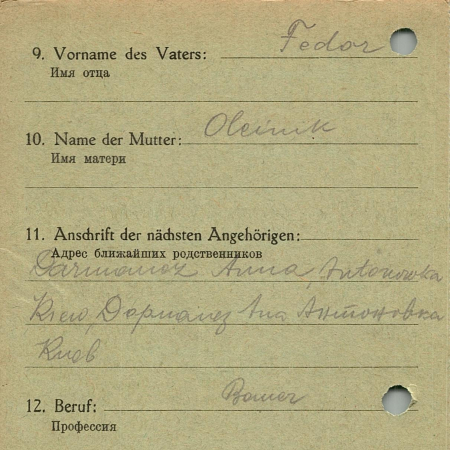 9. Vorname des Vaters: Fedor
Имя отца
10. Name der Mutter: Oleinik
Имя матери
11. Anschrift der nächsten Angehörigen:
Адрес ближайших родственников
Anna Antonowka
Kiew, Антоновка
Киев
12. Beruf: Bauer
Профессия